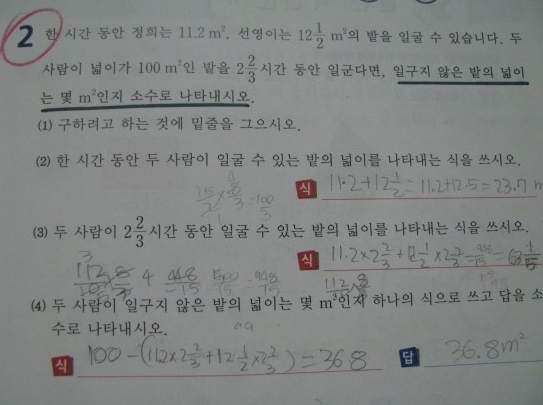 2 한 시간 동안 정희는 11.2 m², 선영이는 12 1/2 m²의 밭을 일굴 수 있습니다. 두
사람이 넓이가 100 m²인 밭을 2 2/3 시간 동안 일군다면, 일구지 않은 밭의 넓이
는 몇 m²인지 소수로 나타내시오.
(1) 구하려고 하는 것에 밑줄을 그으시오.
(2) 한 시간 동안 두 사람이 일굴 수 있는 밭의 넓이를 나타내는 식을 쓰시오.
식 11.2+12 1/2 = 11.2+12.5 = 23.7
(3) 두 사람이 2 2/3 시간 동안 일굴 수 있는 밭의 넓이를 나타내는 식을 쓰시오.
식 11.2×2 2/3 + 12 1/2 ×2 2/3 =
(4) 두 사람이 일구지 않은 밭의 넓이는 몇 m²인지 하나의 식으로 쓰고 답을 소
수로 나타내시오.
식 100-(11.2×2 2/3+12 1/2×2 2/3)=36.8 답 36.8m²